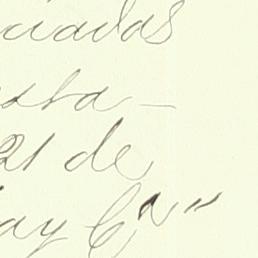 ciadas
esta—
21 de
ay Cª"